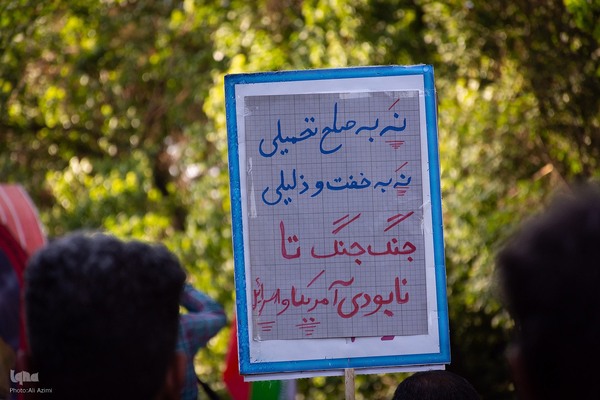 نه به صلح تحمیلی
نه به خفت و ذلیلی
جنگ جنگ تا
نابودی آمریکا و اسرائیل
iqna
Photo:Ali Azimi